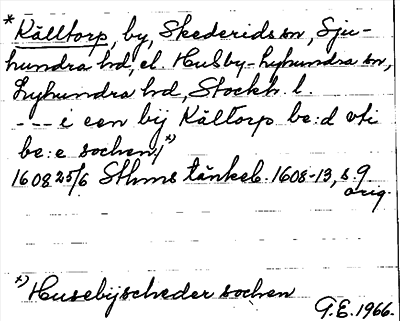 * Källtorp, by, Skederids sn, Sju-
hundra hd, el. Husby-Lyhundra sn,
Lyhundra hd, Stockh. l.
--- i een bij Kältorp be:d uti
be:e sochen/ x)
1608 25/6 Sthms tänkeb. 1608-13, s. 9
orig.
x) Husebijscheder sochen
G.E. 1966.